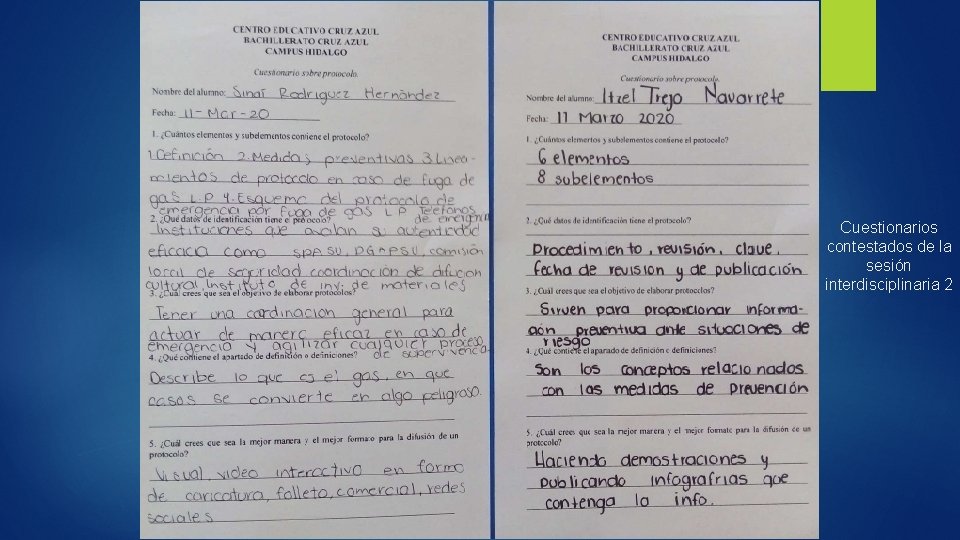 CENTRO EDUCATIVO CRUZ AZUL
BACHILLERATO CRUZ AZUL
CAMPUS HIDALGO
Cuestionario sobre protocolo.
Nombre del alumno: Sinaí Rodríguez Hernández
Fecha: 11-Mar-20
1. ¿Cuántos elementos y subelementos contiene el protocolo?
1. Definición 2. Medidas preventivas 3. Linea-
mientos de protocolo en caso de fuga de
gas L.P 4. Esquema del protocolo de
emergencia por fuga de gas L P Teléfonos
de emergencia
2. ¿Qué datos de identificación tiene el protocolo?
Instituciones que avalan su autenticidad
eficacia como SPASU, DGAPSU, comisión
local de seguridad coordinación de difucion
cultural, Instituto de inv. de materiales
3. ¿Cuál crees que sea el objetivo de elaborar protocolos?
Tener una cordinacion general para
actuar de manera eficaz en caso de
emergencia y agilizar cualquier proceso
de supervivencia
4. ¿Qué contiene el apartado de definición o definiciones?
Describe lo que es el gas, en que
casos se convierte en algo peligroso.
5. ¿Cuál crees que sea la mejor manera y el mejor formato para la difusión de un
protocolo?
Visual, video interactivo en forma
de caricatura, folleto, comercial, redes
sociales
CENTRO EDUCATIVO CRUZ AZUL
BACHILLERATO CRUZ AZUL
CAMPUS HIDALGO
Cuestionario sobre protocolo.
Nombre del alumno: Itzel Trejo Navarrete
Fecha: 11 Marzo 2020
1. ¿Cuántos elementos y subelementos contiene el protocolo?
6 elementos
8 subelementos
2. ¿Qué datos de identificación tiene el protocolo?
Procedimiento, revisión, clave,
fecha de revisión y de publicación
3. ¿Cuál crees que sea el objetivo de elaborar protocolos?
Sirven para proporcionar informa-
ción preventiva ante situaciones de
riesgo
4. ¿Qué contiene el apartado de definición o definiciones?
Son los conceptos relacionados
con las medidas de prevención
5. ¿Cuál crees que sea la mejor manera y el mejor formato para la difusión de un
protocolo?
Haciendo demostraciones y
publicando infografrias que
contenga la info.
Cuestionarios
contestados de la
sesión
interdisciplinaria 2